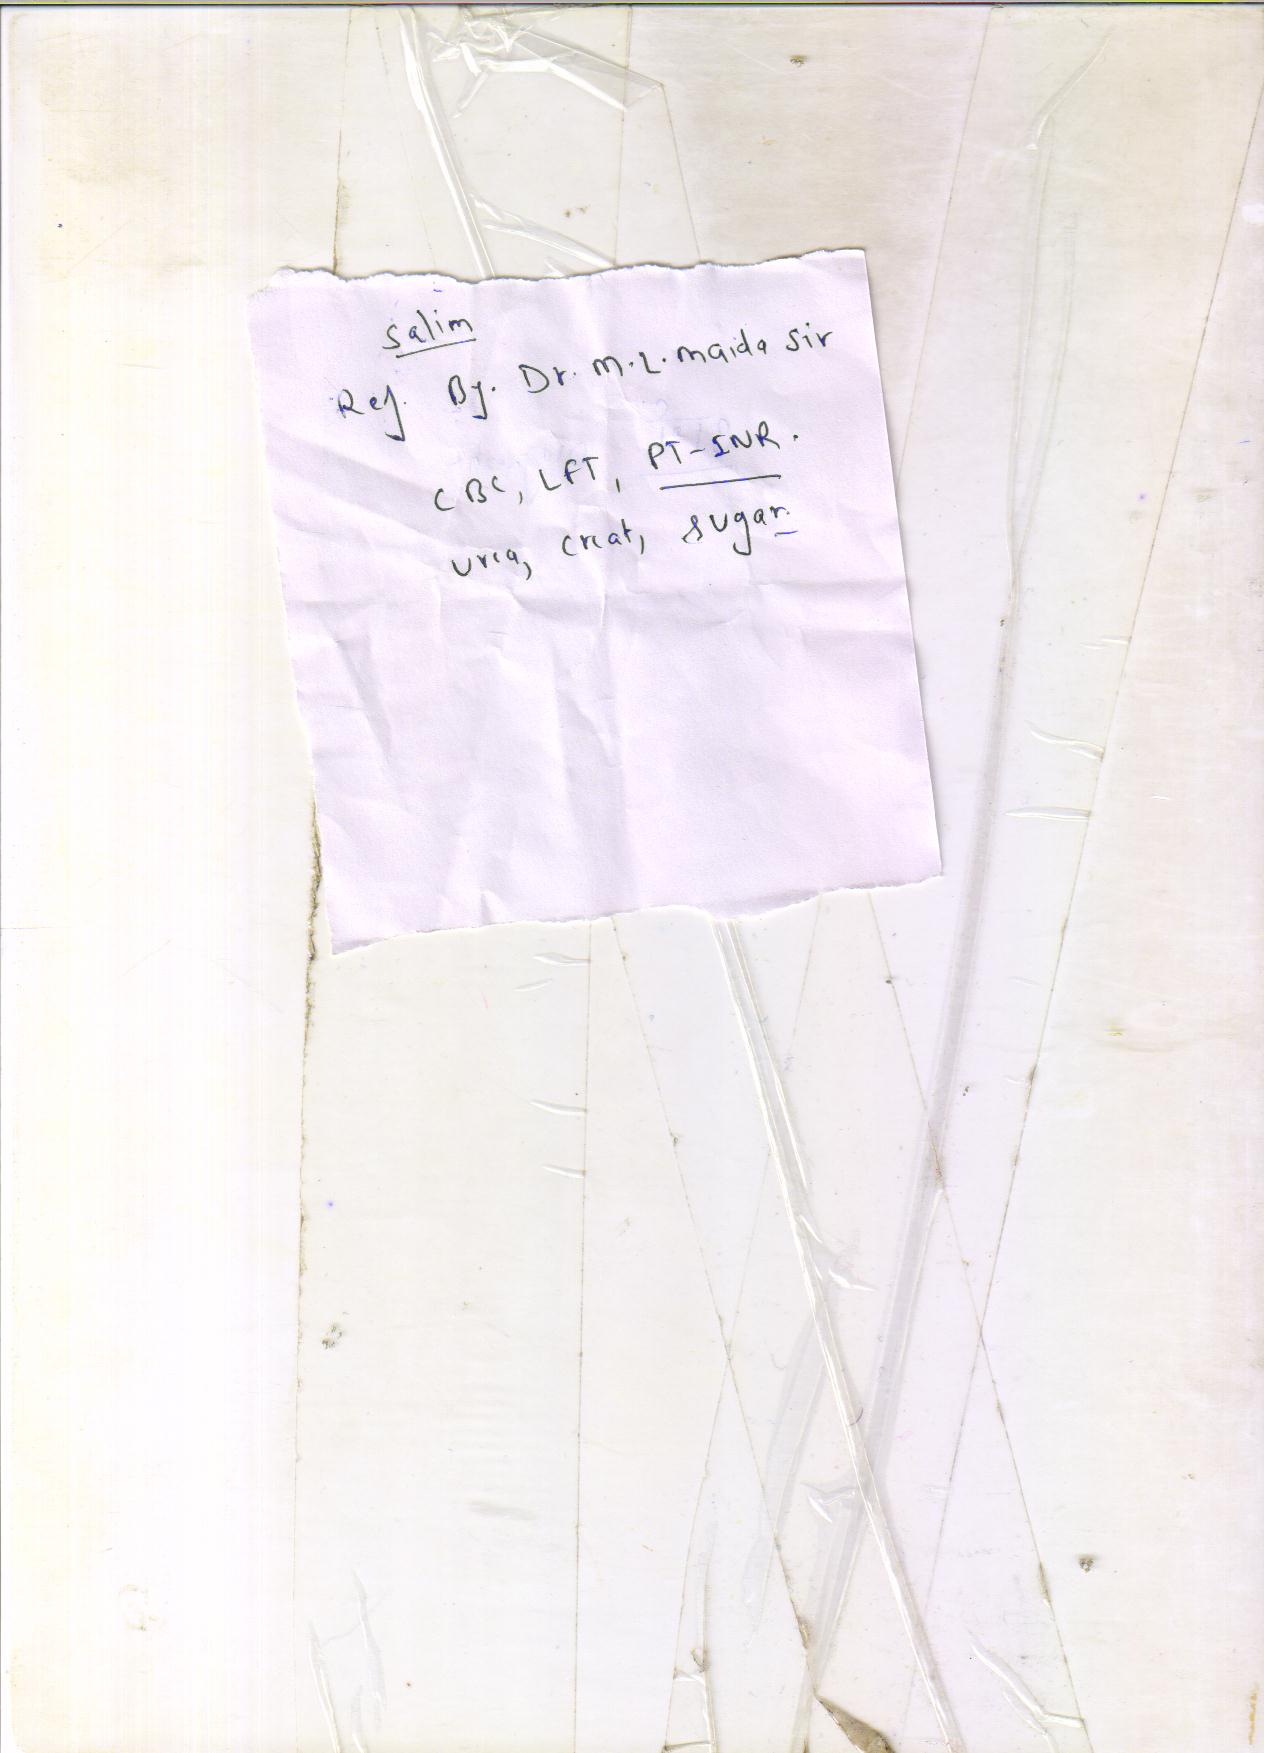 Salim
Ref. By. Dr. M.L. Maida Sir
CBC, LFT, PT-INR.
Urea, Creat, Sugar.